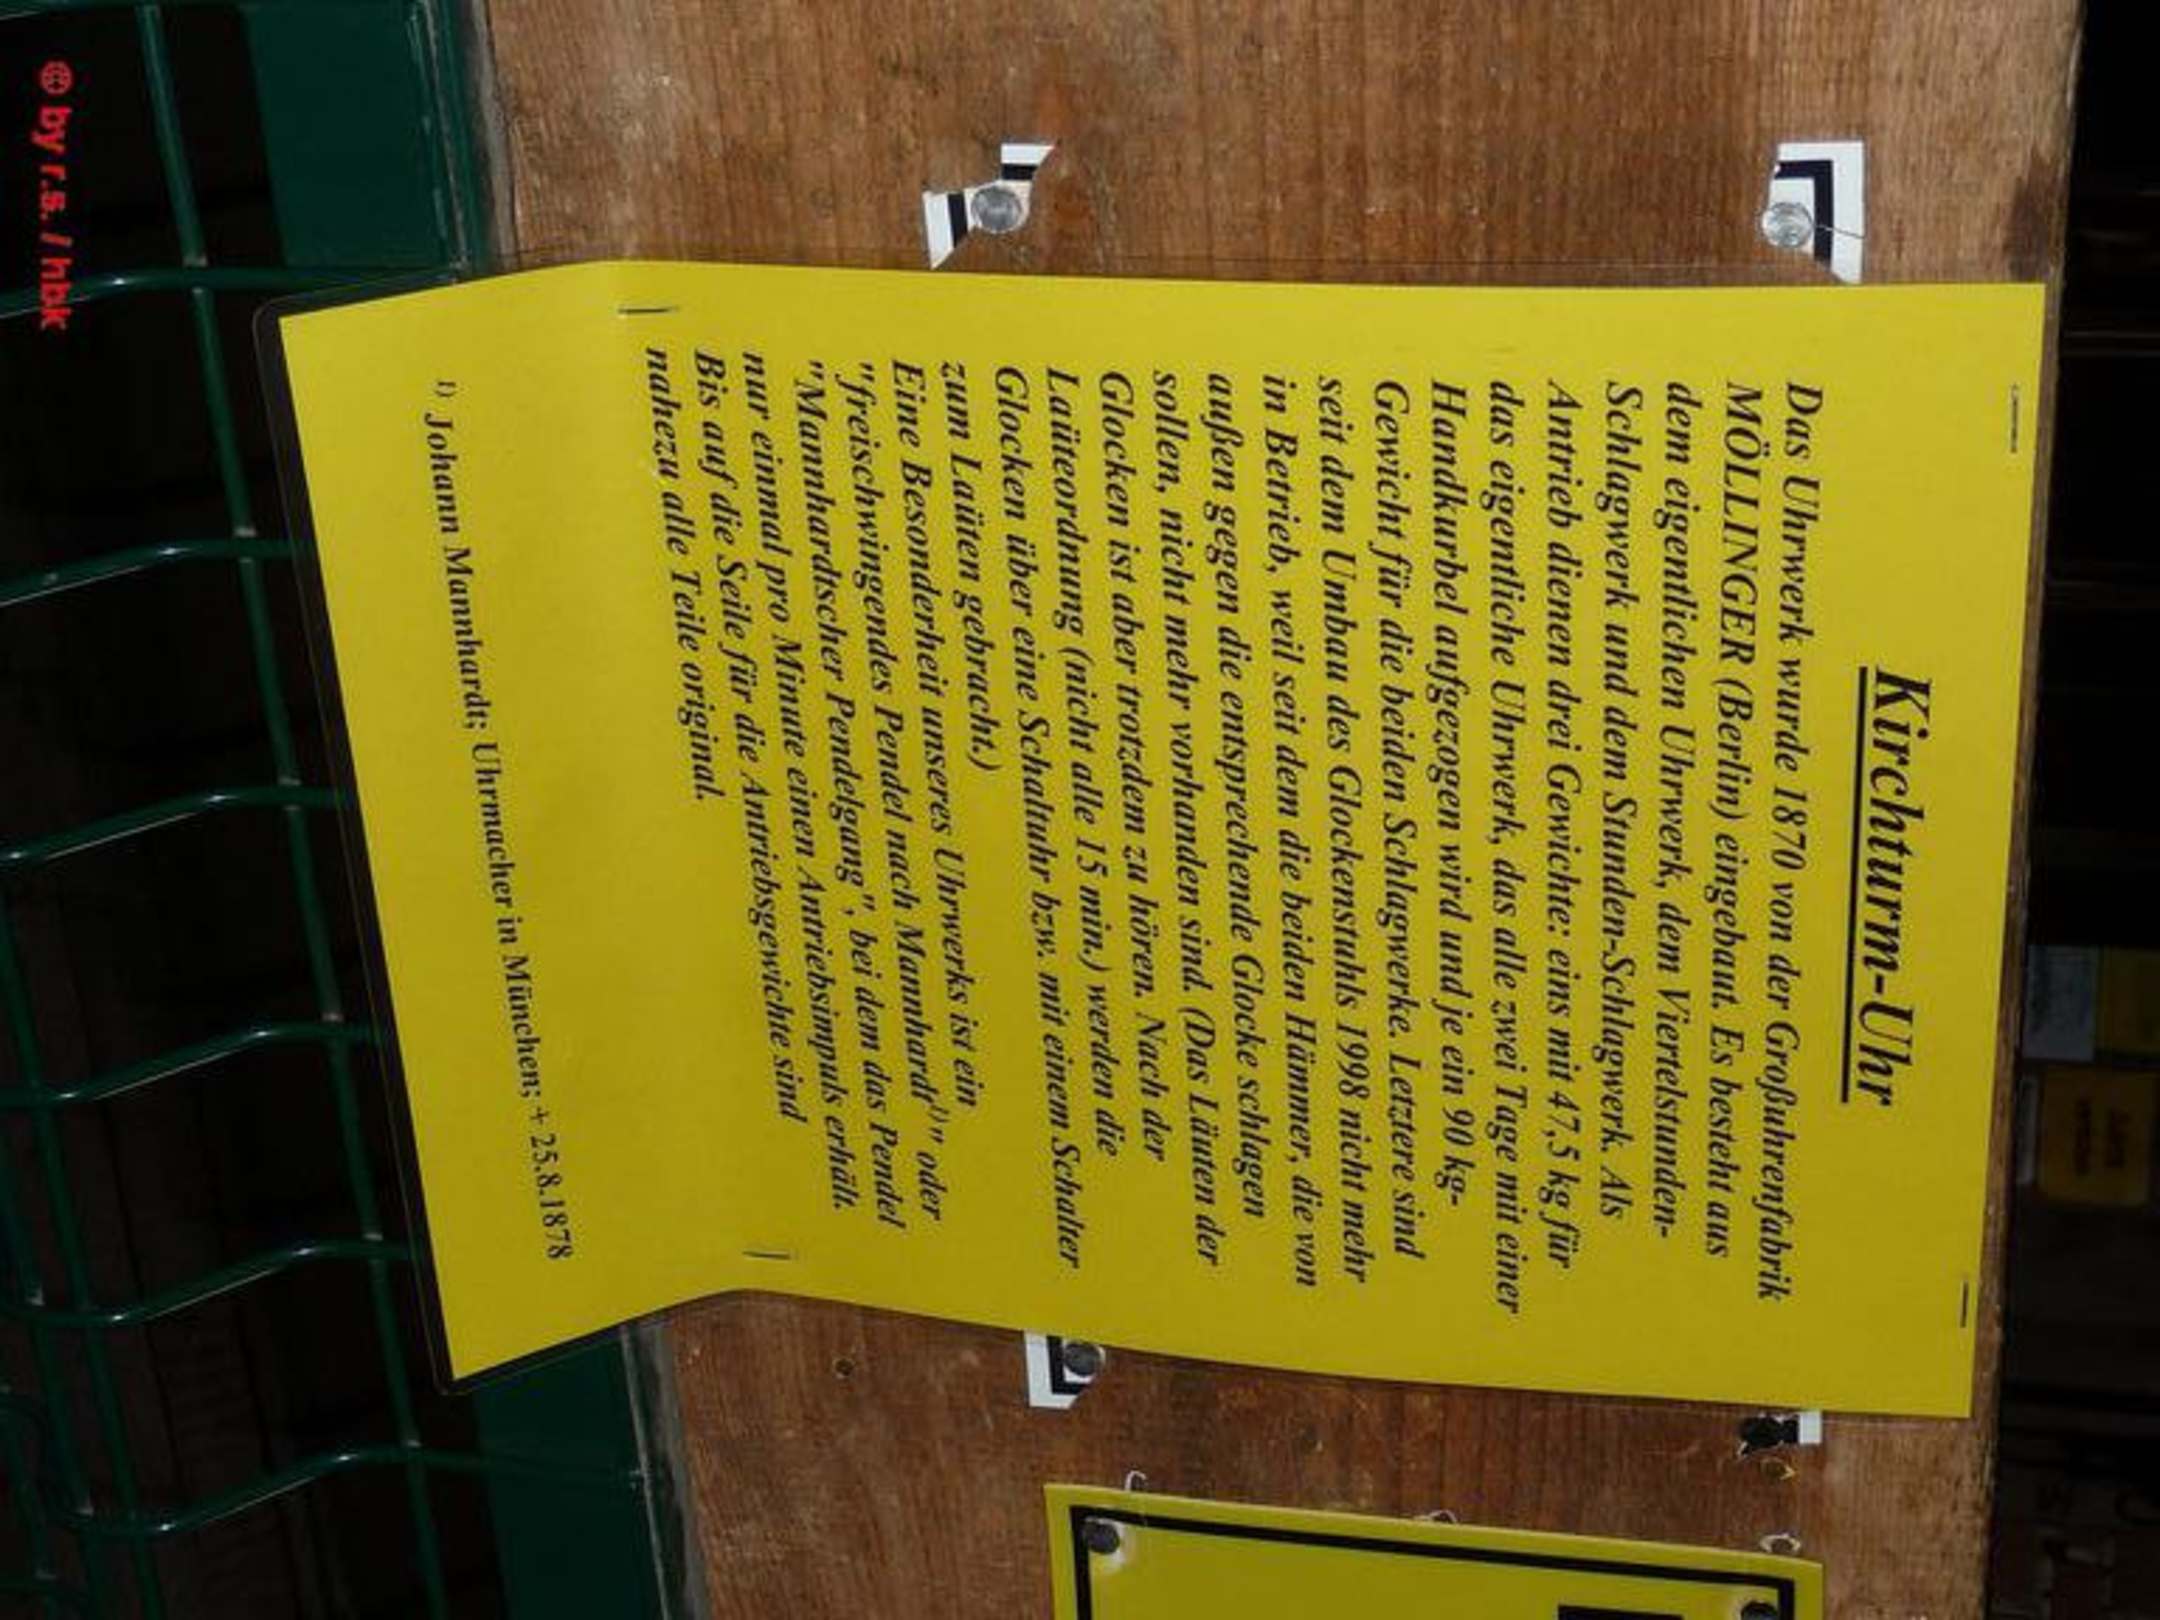 Kirchturm-Uhr
Das Uhrwerk wurde 1870 von der Großuhrenfabrik
MÖLLINGER (Berlin) eingebaut. Es besteht aus
dem eigentlichen Uhrwerk, dem Viertelstunden-
Schlagwerk und dem Stunden-Schlagwerk. Als
Antrieb dienen drei Gewichte: eins mit 47,5 kg für
das eigentliche Uhrwerk, das alle zwei Tage mit einer
Handkurbel aufgezogen wird und je ein 90 kg-
Gewicht für die beiden Schlagwerke. Letztere sind
seit dem Umbau des Glockenstuhls 1998 nicht mehr
in Betrieb, weil seit dem die beiden Hämmer, die von
außen gegen die entsprechende Glocke schlagen
sollen, nicht mehr vorhanden sind. (Das Läuten der
Glocken ist aber trotzdem zu hören. Nach der
Laüteordnung (nicht alle 15 min.) werden die
Glocken über eine Schaltuhr bzw. mit einem Schalter
zum Laüten gebracht.)
Eine Besonderheit unseres Uhrwerks ist ein
"freischwingendes Pendel nach Mannhardt¹⁾" oder
"Mannhardtscher Pendelgang", bei dem das Pendel
nur einmal pro Minute einen Antriebsimpuls erhält.
Bis auf die Seile für die Antriebsgewichte sind
nahezu alle Teile original.
¹⁾ Johann Mannhardt; Uhrmacher in München; + 25.8.1878
© by r.s. / hbk